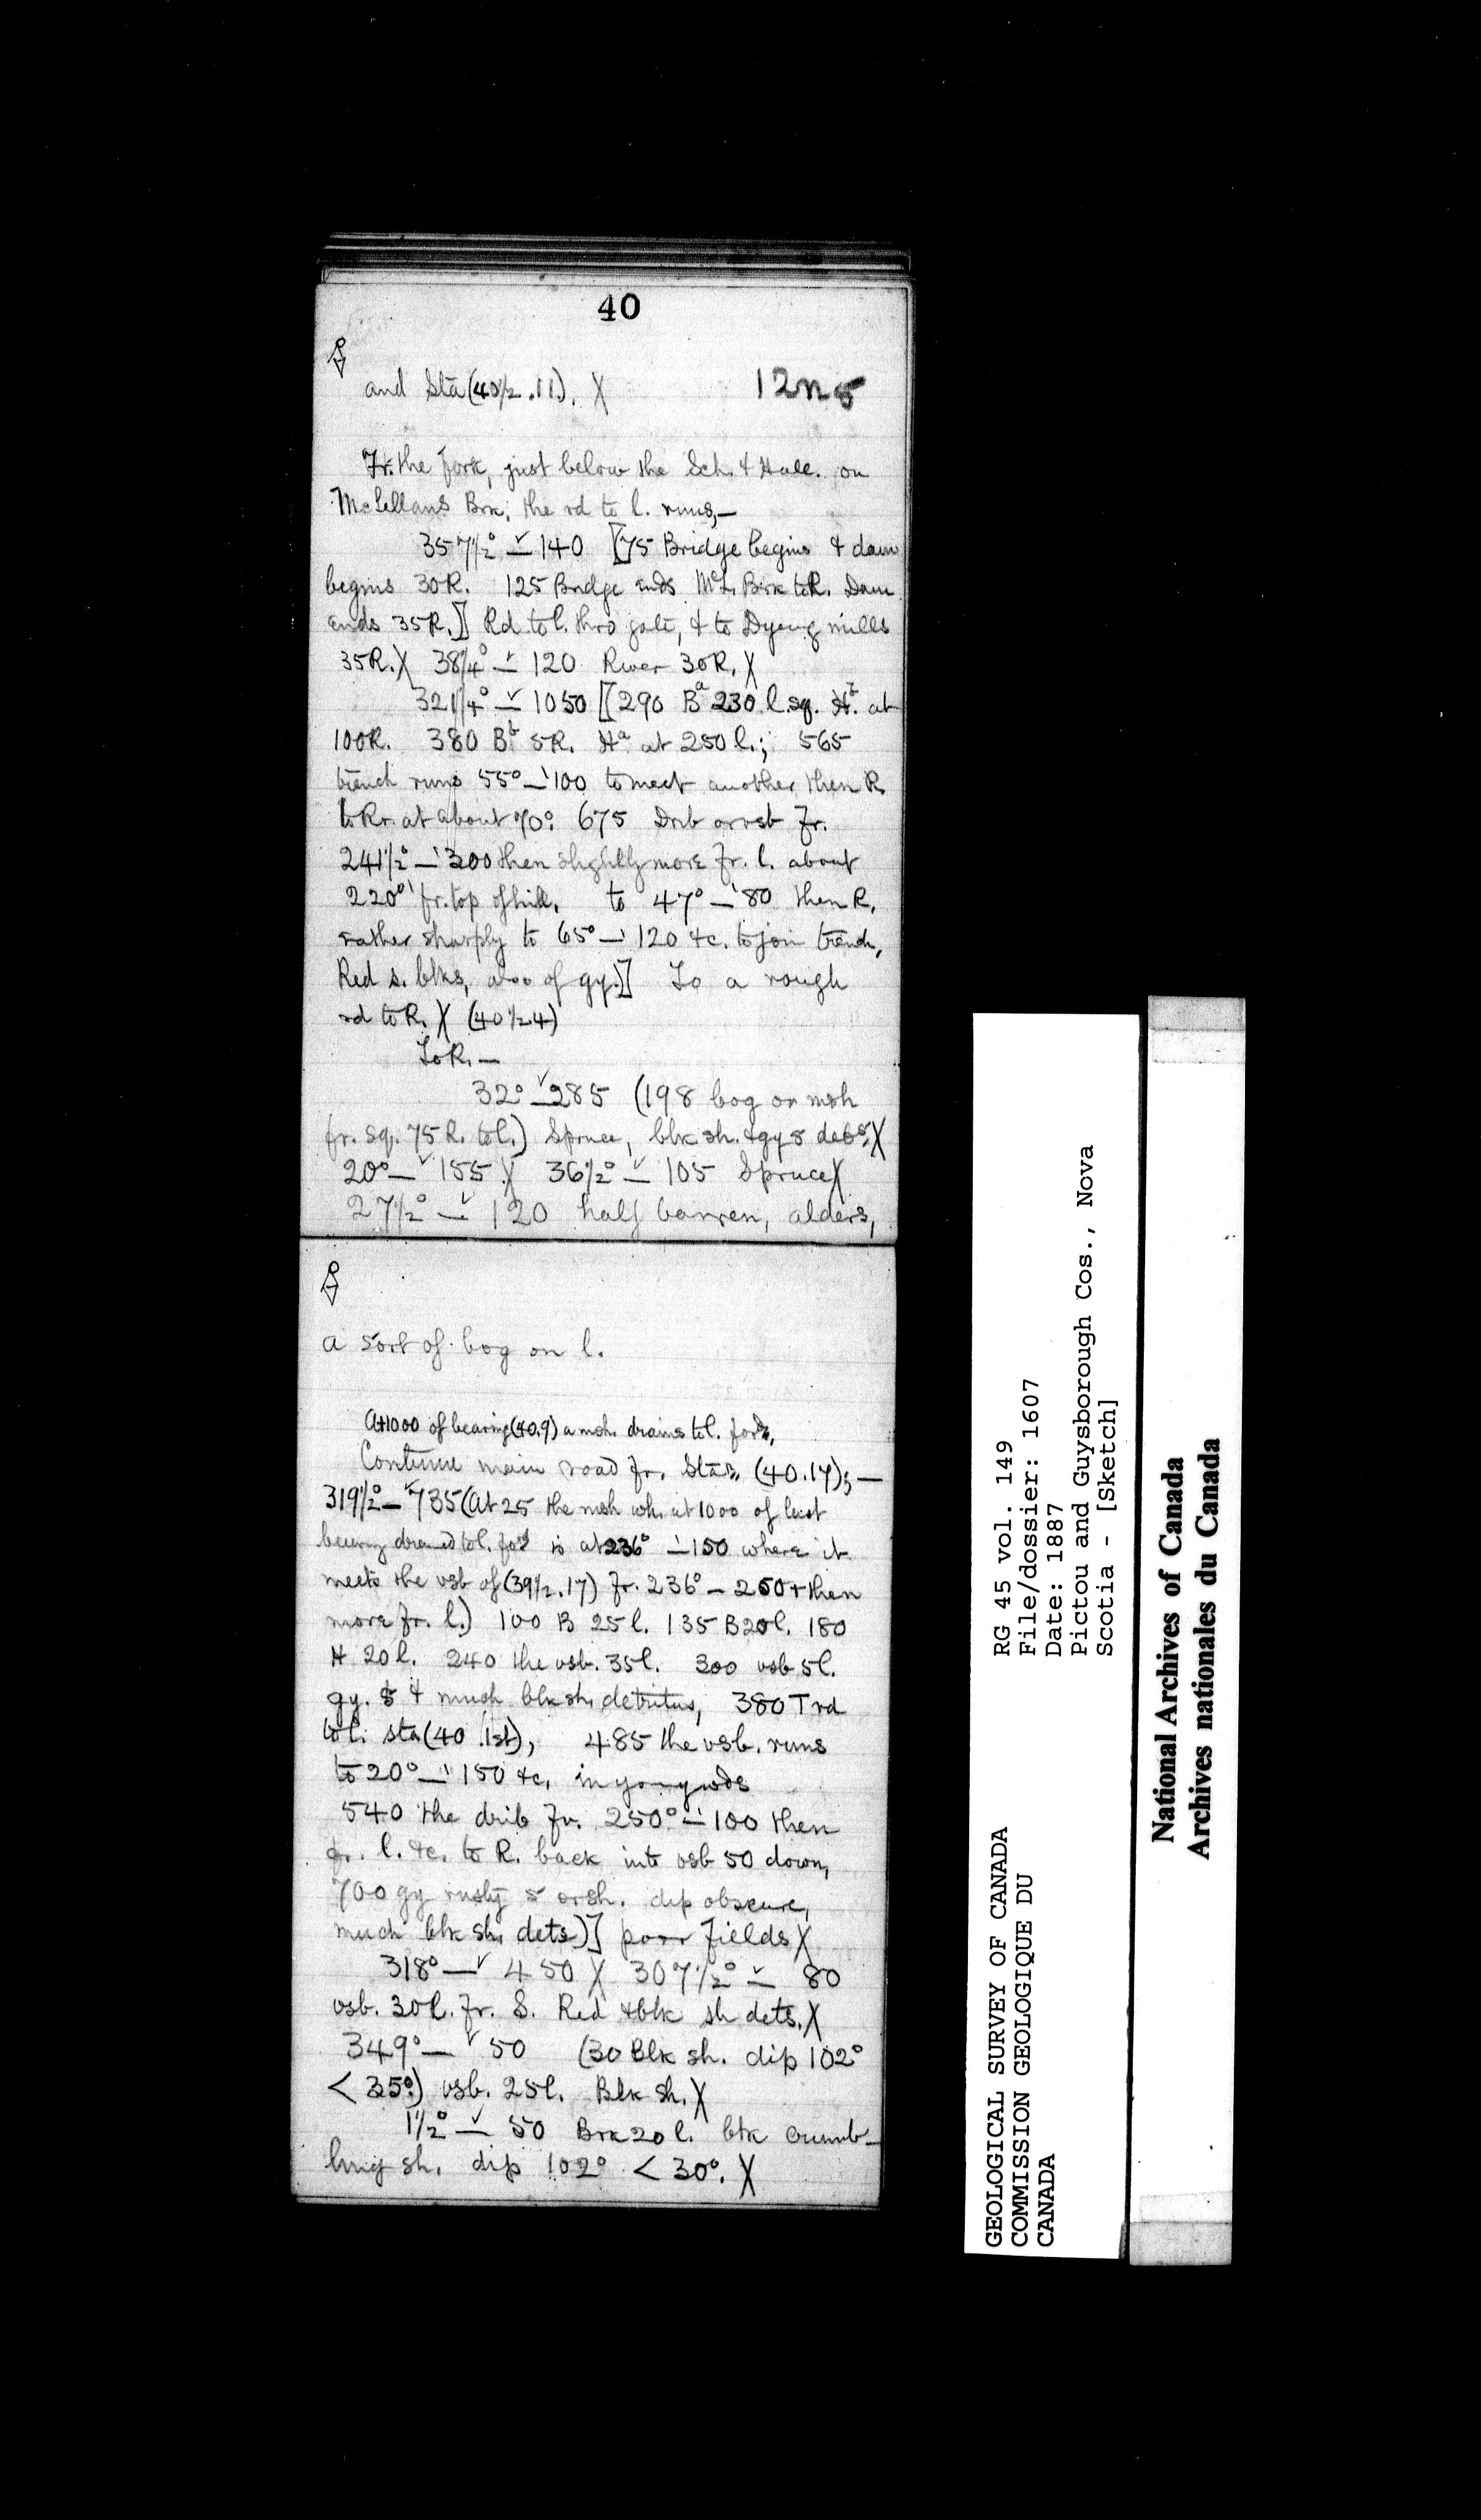 40
and Sta (40½.11). X
12 n 5
Fr. the fork, just below the Sch. & Hall. on
McLellans Brk, the rd to l. runs,—
357½° — 140 [75 Bridge begins & dam
begins 30R. 125 Bridge ends McL. Brk to R. Dam
ends 35R.] Rd to l. thro gate, & to Dyeing mills
35R. X 38¼° — 120 River 30R. X
321¼° — 1050 [290 Bᵃ 230 l. sq. at
100R. 380 Bᵗ 5R. Hᵃ at 250 l.; 565
trench runs 55° — 100 to meet another then R.
to Rr. at about 70°. 675 Drib or vsb fr.
241½° — 300 then slightly more fr. l. about
220° fr. top of hill. to 47° — 80 then R.
rather sharply to 65° — 120 &c. to join trench,
Red s. blks, also of gy.] To a rough
rd to R. X (40½.4)
To R. —
32° — 285 (198 bog or msh
fr. sq. 75 R. to l.) Spruce, blk sh. & gy s dets. X
20° — 155 X 36½° — 105 Spruce X
27½° — 120 half barren, alders,
a sort of bog on l.
At 1000 of bearing (40.9) a msh. drains to l. for
Continue main road fr. Sta. (40.17); —
319½° — 735 (At 25 the msh wh. at 1000 of last
bearing drained to l. is at 236° — 150 where it
meets the vsb of (39½.17) fr. 236° — 250 + then
more fr. l.) 100 B 25 l. 135 B 20 l. 180
H 20 l. 240 the vsb. 35 l. 300 vsb 5 l.
gy. s & much blk sh. detritus, 380 T rd
to l. Sta (40.1st), 485 the vsb. runs
to 20° — 150 &c. in young wds
540 the drib fr. 250° — 100 then
fr. l. &c. to R. back into vsb 50 down,
700 gy rusty s or sh. dip obscure,
much blk sh. dets)] poor fields X
318° — 450 X 307½° — 80
vsb. 30 l. fr. S. Red & blk sh dets. X
349° — 50 (30 Blk sh. dip 102°
< 35°.) vsb. 25 l. Blk sh. X
1½° — 50 Brk 20 l. blk crumb-
ling sh. dip 102° < 30°. X
GEOLOGICAL SURVEY OF CANADA
COMMISSION GEOLOGIQUE DU
CANADA
RG 45 vol. 149
File/dossier: 1607
Date: 1887
Pictou and Guysborough Cos., Nova
Scotia - [Sketch]
National Archives of Canada
Archives nationales du Canada